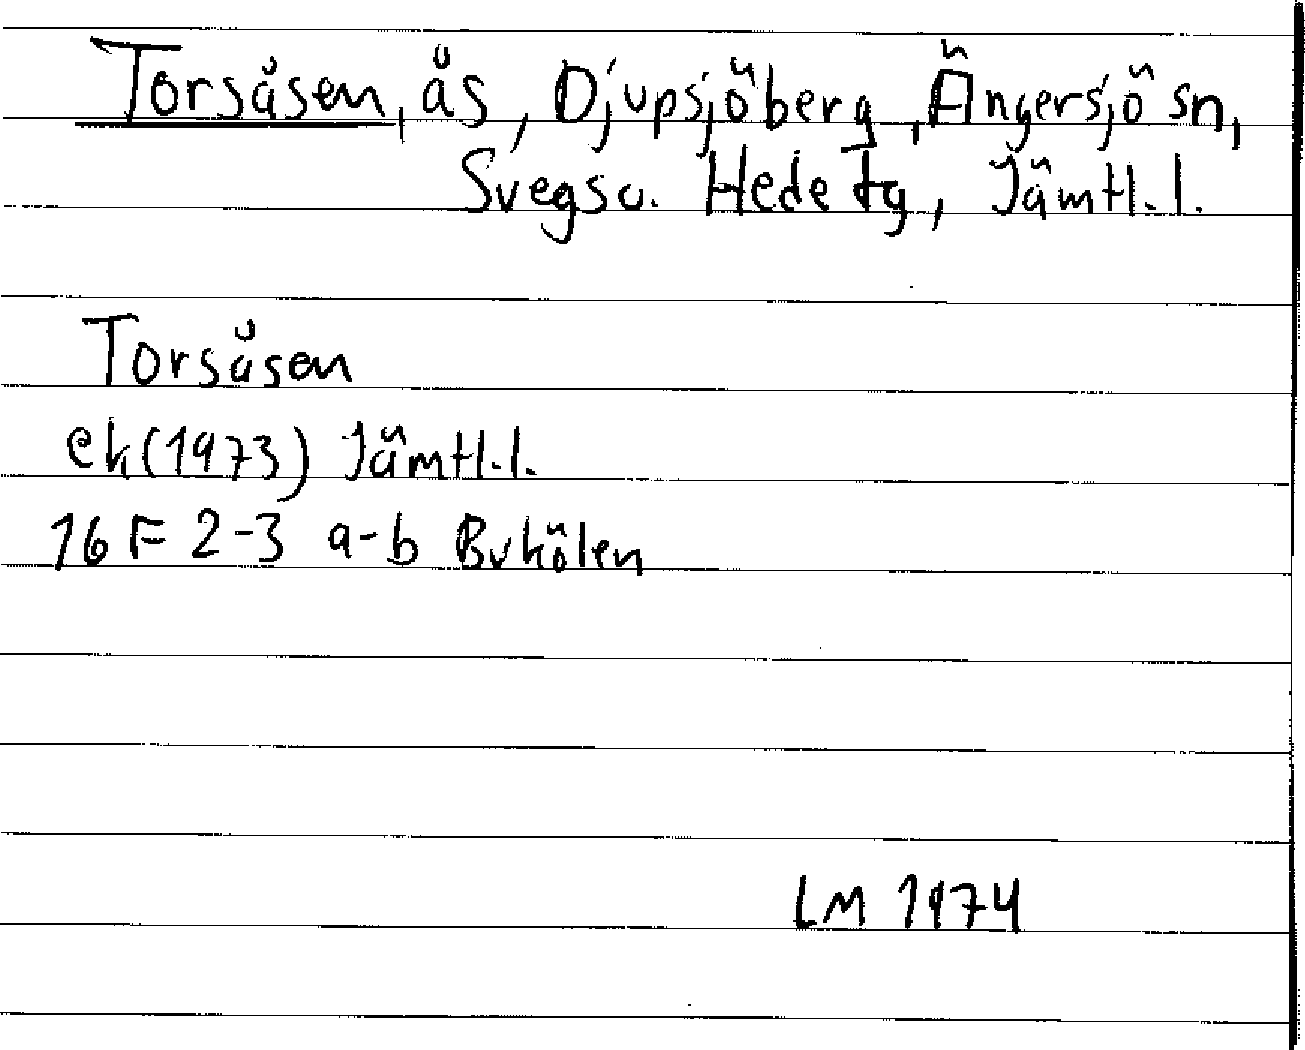 Torsåsen, ås, Djupsjöberg, Ängersjö sn,
Svegs o. Hede tg, Jämtl. l.
Torsåsen
ek (1973) Jämtl. l.
16 F 2-3 a-b Bukölen
LM 1974